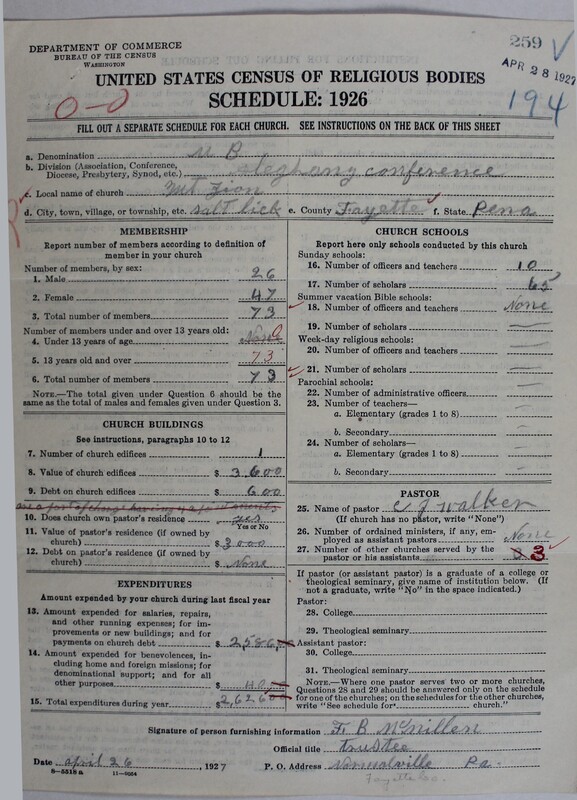 DEPARTMENT OF COMMERCE
BUREAU OF THE CENSUS
WASHINGTON
259
APR 28 1927
194
0-0
UNITED STATES CENSUS OF RELIGIOUS BODIES
SCHEDULE: 1926
FILL OUT A SEPARATE SCHEDULE FOR EACH CHURCH. SEE INSTRUCTIONS ON THE BACK OF THIS SHEET
a. Denomination U B
b. Division (Association, Conference, Diocese, Presbytery, Synod, etc.) Aleghany conference
c. Local name of church Mt Zion
d. City, town, village, or township, etc. Salt Lick e. County Fayette f. State Pena
MEMBERSHIP
Report number of members according to definition of member in your church
Number of members, by sex:
1. Male 26
2. Female 47
3. Total number of members 73
Number of members under and over 13 years old:
4. Under 13 years of age None 0
5. 13 years old and over 73
6. Total number of members 73
NOTE.—The total given under Question 6 should be the same as the total of males and females given under Question 3.
CHURCH BUILDINGS
See instructions, paragraphs 10 to 12
7. Number of church edifices 1
8. Value of church edifices $ 3,600
9. Debt on church edifices $ 600
10. Does church own pastor's residence yes
Yes or No
11. Value of pastor's residence (if owned by church) $ 3000
12. Debt on pastor's residence (if owned by church) $ None
EXPENDITURES
Amount expended by your church during last fiscal year
13. Amount expended for salaries, repairs, and other running expenses; for improvements or new buildings; and for payments on church debt $ 2586
14. Amount expended for benevolences, including home and foreign missions; for denominational support; and for all other purposes $ 40
15. Total expenditures during year $ 2,626
CHURCH SCHOOLS
Report here only schools conducted by this church
Sunday schools:
16. Number of officers and teachers 10
17. Number of scholars 65
Summer vacation Bible schools:
18. Number of officers and teachers None
19. Number of scholars —
Week-day religious schools:
20. Number of officers and teachers —
21. Number of scholars —
Parochial schools:
22. Number of administrative officers —
23. Number of teachers—
a. Elementary (grades 1 to 8) —
b. Secondary —
24. Number of scholars—
a. Elementary (grades 1 to 8) —
b. Secondary —
PASTOR
25. Name of pastor C J Walker
(If church has no pastor, write "None")
26. Number of ordained ministers, if any, employed as assistant pastors None
27. Number of other churches served by the pastor or his assistants 3
If pastor (or assistant pastor) is a graduate of a college or theological seminary, give name of institution below. (If not a graduate, write "No" in the space indicated.)
Pastor:
28. College
29. Theological seminary
Assistant pastor:
30. College
31. Theological seminary
NOTE.—Where one pastor serves two or more churches, Questions 28 and 29 should be answered only on the schedule for one of the churches; on the schedules for the other churches, write "See schedule for church."
Signature of person furnishing information F. B McMillen
Official title trustee
Date april 26, 1927 P. O. Address Normalville Pa.
8-5518 a 11-9054
Fayette Co.